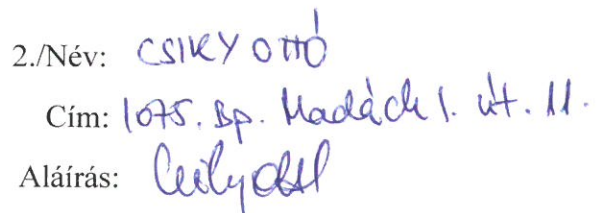 2./Név: CSIKY OTTÓ
Cím: 1075. Bp. Madách I. út. 11.
Aláírás: Csiky Ottó